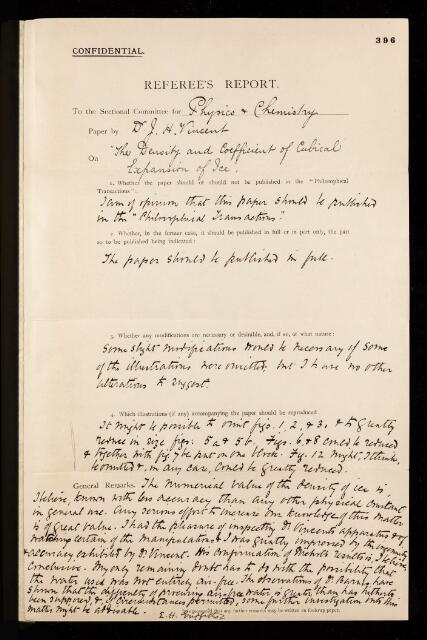 396
CONFIDENTIAL.
REFEREE'S REPORT.
To the Sectional Committee for Physics & Chemistry
Paper by Dr J. H. Vincent
On "The Density and Coefficient of Cubical
Expansion of Ice.
1. Whether the paper should or should not be published in the "Philosophical
Transactions":
I am of opinion that this paper should be published
in the "Philosophical Transactions".
2. Whether, in the former case, it should be published in full or in part only, the part
so to be published being indicated:
The paper should be published in full.
3. Whether any modifications are necessary or desirable, and, if so, of what nature:
Some slight modifications would be necessary if some
of the illustrations were omitted, but I have no other
alterations to suggest.
4. Which illustrations (if any) accompanying the paper should be reproduced
It might be possible to omit figs. 1, 2, & 3, & to greatly
reduce in size figs. 5a & 5b. Figs. 6 & 8 could be reduced
& together with fig. 7 be put on one block. Fig. 12 might, I think,
be omitted &, in any case, could be greatly reduced.
General Remarks. The numerical value of the density of ice is,
I believe, known with less accuracy than any other physical constant
in general use. Any serious effort to increase our knowledge of this matter
is of great value. I had the pleasure of inspecting Dr Vincent's apparatus & of
watching certain of the manipulations & I was greatly impressed by the ingenuity
& accuracy exhibited by Dr Vincent. His confirmation of Nichols' results is, I believe,
conclusive. My only remaining doubt has to do with the possibility that
the water used was not entirely air-free. The observations of Dr Barnes have
shown that the difficulty of procuring air-free water is greater than has hitherto
been supposed, & if circumstances permitted, some further investigation into this
matter might be advisable.
E. H. Griffiths
that any further remarks may be written on foolscap paper.